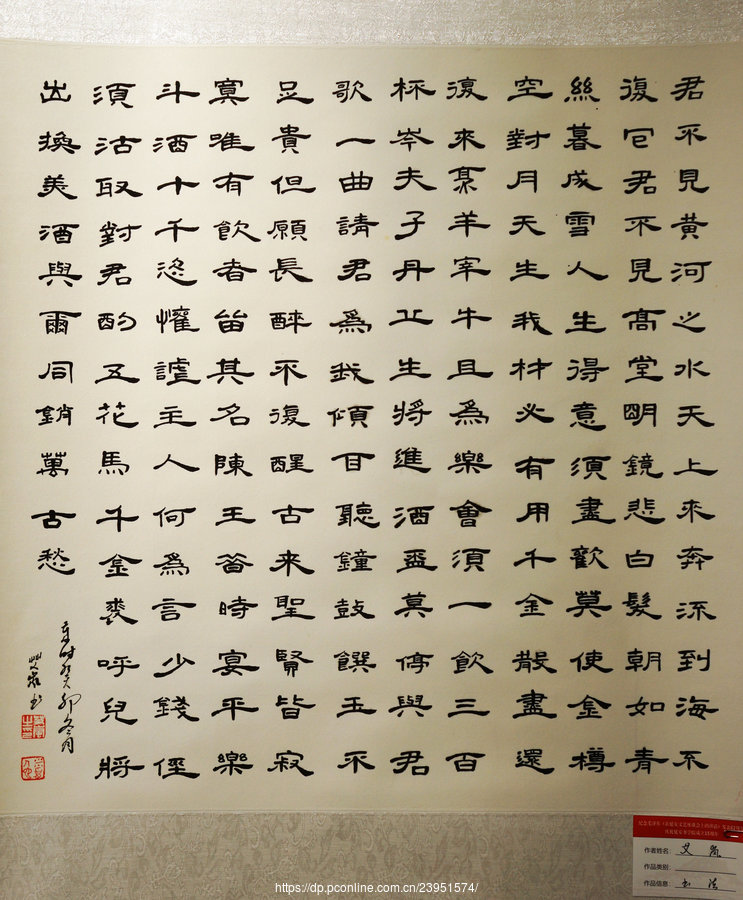 君不見黃河之水天上來奔流到海不
復回君不見高堂明鏡悲白髮朝如青
絲暮成雪人生得意須盡歡莫使金樽
空對月天生我材必有用千金散盡還
復來烹羊宰牛且為樂會須一飲三百
杯岑夫子丹丘生將進酒盃莫停與君
歌一曲請君為我傾耳聽鐘鼓饌玉不
足貴但願長醉不復醒古来聖賢皆寂
寞唯有飲者留其名陳王昔時宴平樂
斗酒十千恣懽謔主人何為言少錢徑
須沽取對君酌五花馬千金裘呼兒將
出換美酒與爾同銷萬古愁
时癸卯冬月
书
纪念毛泽东《在延安文艺座谈会上的讲话》
作者姓名: 艾
作品类别:
作品信息: 书法
https://dp.pconline.com.cn/23951574/